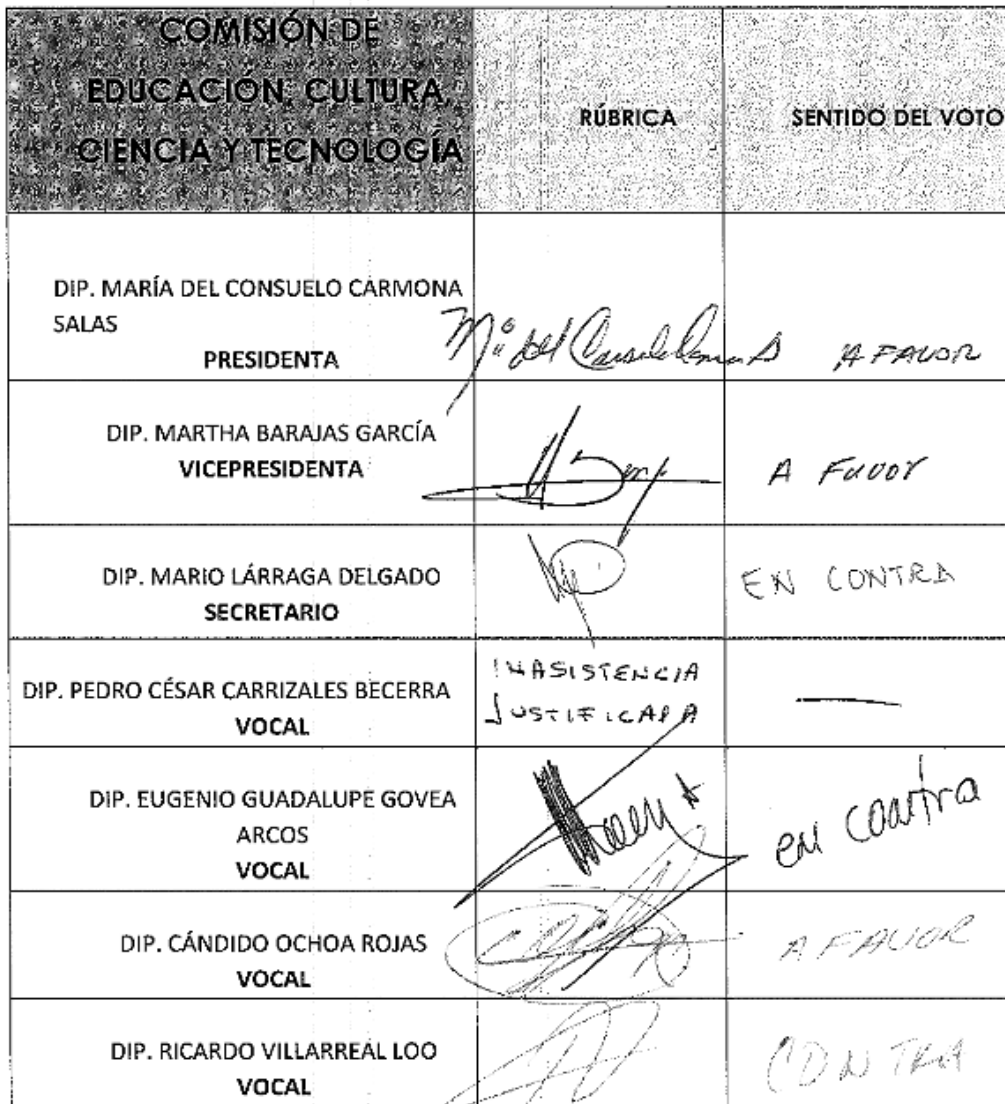 COMISIÓN DE
EDUCACIÓN, CULTURA
CIENCIA Y TECNOLOGÍA
RÚBRICA
SENTIDO DEL VOTO
DIP. MARÍA DEL CONSUELO CARMONA
SALAS
PRESIDENTA
Mª del Consuelo Carmona S
A FAVOR
DIP. MARTHA BARAJAS GARCÍA
VICEPRESIDENTA
A FAVOR
DIP. MARIO LÁRRAGA DELGADO
SECRETARIO
EN CONTRA
DIP. PEDRO CÉSAR CARRIZALES BECERRA
VOCAL
INASISTENCIA
JUSTIFICADA
—
DIP. EUGENIO GUADALUPE GOVEA
ARCOS
VOCAL
en contra
DIP. CÁNDIDO OCHOA ROJAS
VOCAL
A FAVOR
DIP. RICARDO VILLARREAL LOO
VOCAL
CONTRA